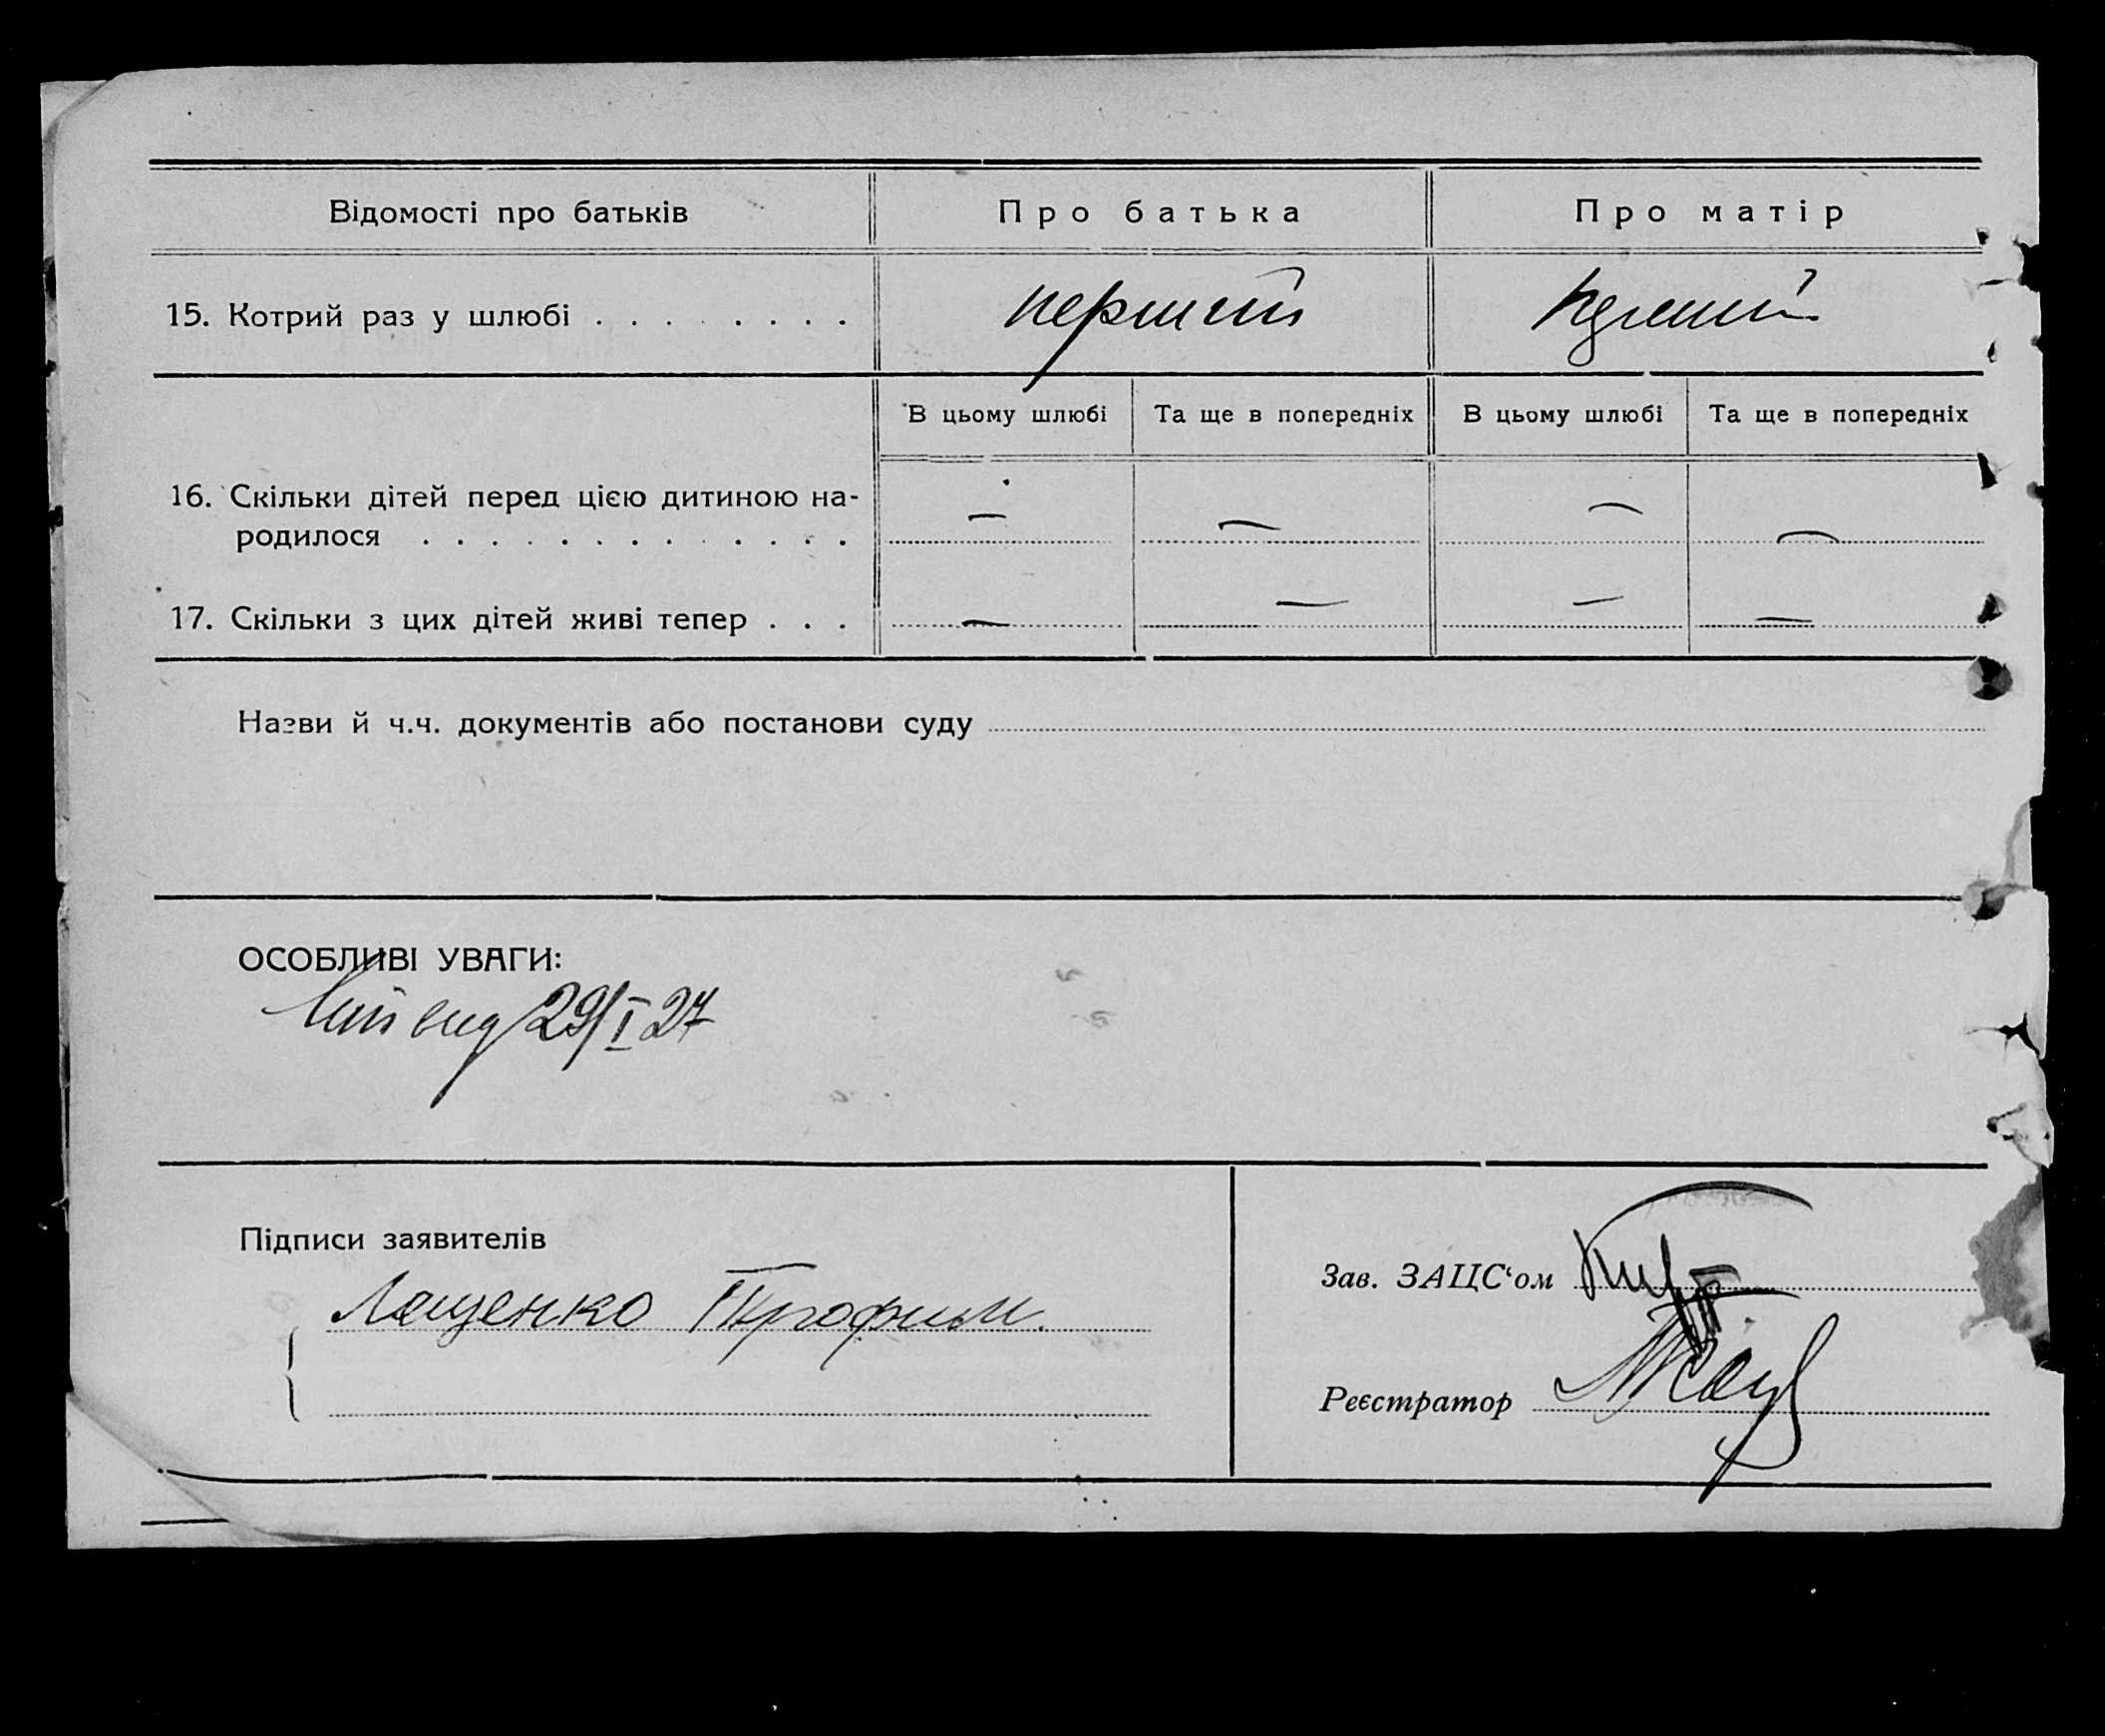 Відомості про батьків
Про батька
Про матір
15. Котрий раз у шлюбі . . . . . . . .
перший
перший
В цьому шлюбі
Та ще в попередніх
В цьому шлюбі
Та ще в попередніх
16. Скільки дітей перед цією дитиною на-
родилося . . . . . . . . . . . . .
— — — —
17. Скільки з цих дітей живі тепер . . .
— — — —
Назви й ч.ч. документів або постанови суду
ОСОБЛИВІ УВАГИ:
вид 29/I 27
Підписи заявителів
Лященко Трофим.
Зав. ЗАЦС‘ом
Реєстратор